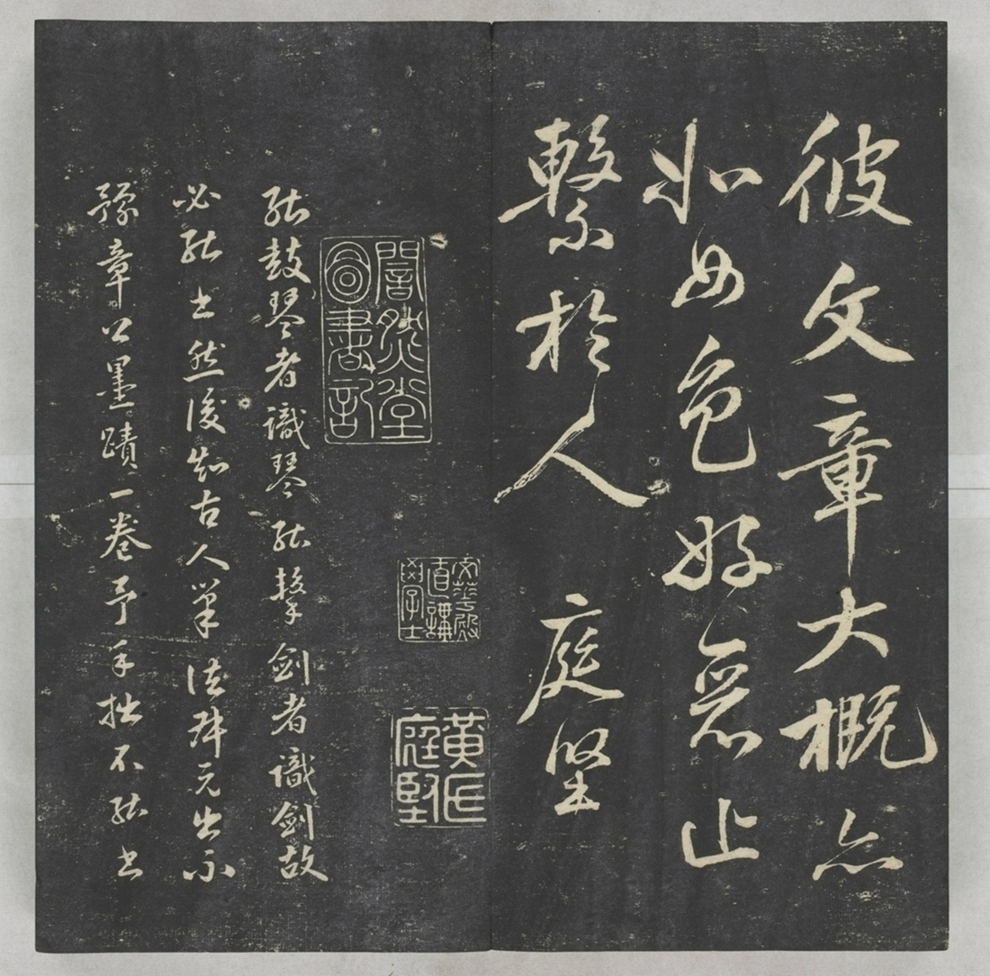 彼文章大概亦
如女色好惡止
繫於人 庭堅
闇然堂
圖書記
黃氏
庭堅
能鼓琴者識琴能擊劍者識劍故
必能書然後知古人筆法元出示
豫章公墨蹟一卷予手拙不能書